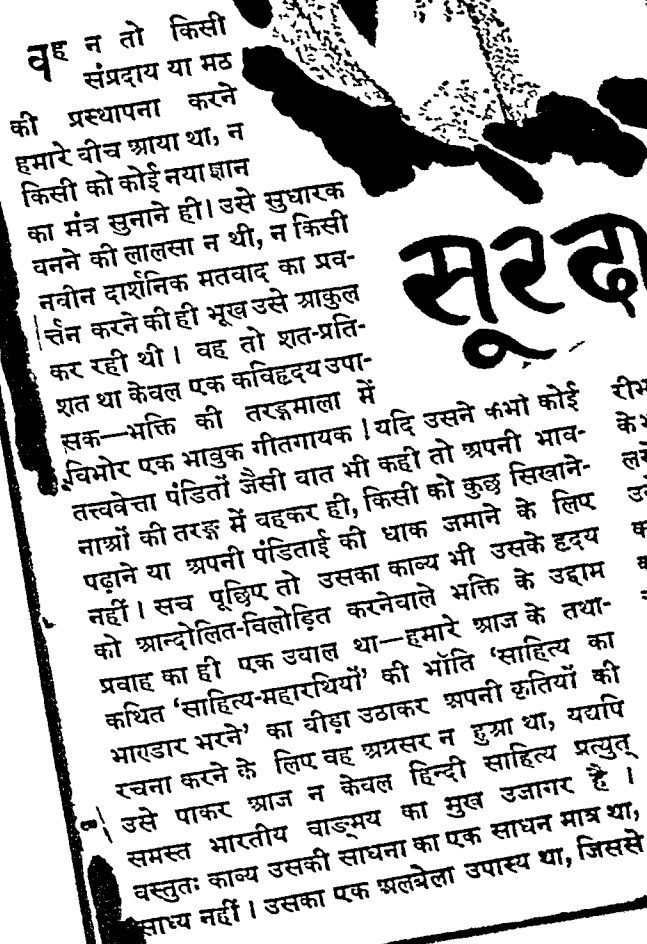 वह न तो किसी
संप्रदाय या मठ
की प्रस्थापना करने
हमारे बीच आया था, न
किसी को कोई नया ज्ञान
का मंत्र सुनाने ही। उसे सुधारक
बनने की लालसा न थी, न किसी
नवीन दार्शनिक मतवाद का प्रव-
र्त्तन करने की ही भूख उसे आकुल
कर रही थी। वह तो शत-प्रति-
शत था केवल एक कविहृदय उपा-
सक—भक्ति की तरङ्गमाला में
विभोर एक भावुक गीतगायक। यदि उसने कभी कोई
तत्त्ववेत्ता पंडितों जैसी बात भी कही तो अपनी भाव-
नाओं की तरङ्ग में बहकर ही, किसी को कुछ सिखाने-
पढ़ाने या अपनी पंडिताई की धाक जमाने के लिए
नहीं। सच पूछिए तो उसका काव्य भी उसके हृदय
को आन्दोलित-विलोड़ित करनेवाले भक्ति के उद्दाम
प्रवाह का ही एक उबाल था—हमारे आज के तथा-
कथित ‘साहित्य-महारथियों’ की भाँति ‘साहित्य का
भाण्डार भरने’ का बीड़ा उठाकर अपनी कृतियों की
रचना करने के लिए वह अग्रसर न हुआ था, यद्यपि
उसे पाकर आज न केवल हिन्दी साहित्य प्रत्युत्
समस्त भारतीय वाङ्मय का मुख उजागर है।
वस्तुतः काव्य उसकी साधना का एक साधन मात्र था,
साध्य नहीं। उसका एक अलबेला उपास्य था, जिससे
सूरदा
रीभ
के